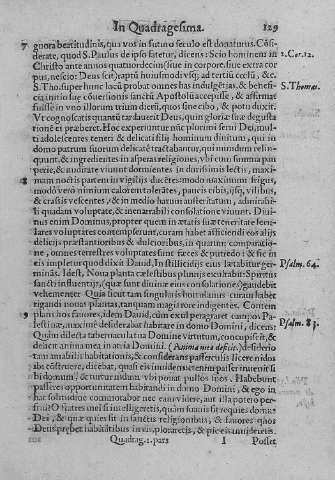 In Quadragesima. 129
7 gnora beatitudinis, qui vos in futuro seculo est donaturus. Cõsi-
derate, quod S. Paulus de ipso fatetur, dicens: Scio hominem in 2. Cor. 12.
Christo ante annos quatuordecim (siue in corpore, siue extra cor
pus, nescio: Deus scit) raptũ huiusmodi vsq; ad tertiũ cœlũ, &c.
S. Tho. super hunc locũ probat omnes has indulgẽtias, & benefi- S. Thomas.
cia initio suę cõuersionis sanctũ Apostolũ accepisse, & affirmat
fuisse in vno illorum trium dierũ, quos sine cibo, & potu duxit.
Vt cognoscatis quantũ
tionẽ ei præberet. Hoc experiuntur nũc plurimi serui Dei, mul-
ti adolescentes teneri & delicati filij hominum diuitum, qui in
domo patrum suorum delicatè tractabantur, qui mundum relin-
quunt, & ingredientes in asperas religiones, vbi cum summa pau
perie, & nuditate viuunt dormientes in durissimis lectis, maxi-
8 mam noctis partem in vigilijs ducẽtes modò maximum frigus,
modò verò nimium calorem tolerãtes, paucis cibis, ijsq; vilibus,
& crassis vescentes, & in medio harum austeritatum, admirabi-
li quadam voluptate, & inenarrabili consolatione viuunt. Diui-
nus enim Dominus, propter quem in ætatis suæ teneritate secu-
lares voluptates contempserunt, curam habet afficiendi eos alijs
delicijs præstantioribus & dulcioribus, in quarum comparatio-
ne, omnes terrestres voluptates sunt fæces & putredo: & sic in
eis impletur quod dixit Dauid, In stillicidijs eius lætabitur ger- Psalm. 64.
minans. Idest, Noua planta cælestibus pluuijs exultabit: Spiritus
sancti influentijs, (quæ sunt diuinæ eius consolationes) gaudebit
vehementer. Quia sicut tam singularis hortulanus curam habet
rigandi nouas plantas, tanquam magis rore indigentes. Contem
9 plans hos fauores, idem Dauid, cùm exul peragraret campos Pa-
lestinæ, maximè desiderabat habitare in domo Domini, dicens: Psalm. 83.
Quàm dilecta tabernacula tua Domine virtutum, concupiscit, &
deficit anima mea in atria Domini: (Anima mea deficit,) desiderio
tam amabilis habitationis, & considerans passerculis licere nidos
ibi cõstruere, dicebat, quasi eis inuidens: etenim passer inuenit si
bi domum, & turtur nidum vbi ponat pullos suos. Habebunt
passeres opportunitatem habitandi in domo Domini, & ego in
hac solitudine commorabor nec eam videre, aut illa potero per-
frui? O fratres mei si intelligeretis, quàm suauis sit requies domus
Dei, & quæ quies sit in sanctis religionibus, & fauores quos
Deus præbet habitãtibus in
Quadrag. 1. pars I Posset